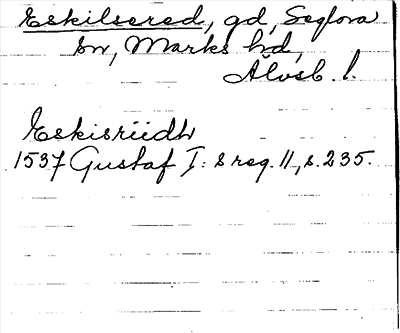 Eskilsered, gd, Seglora
sn, Marks hd,
Älvsb. l.
Eskisriidh
1537 Gustaf I: s reg. 11, s. 235.